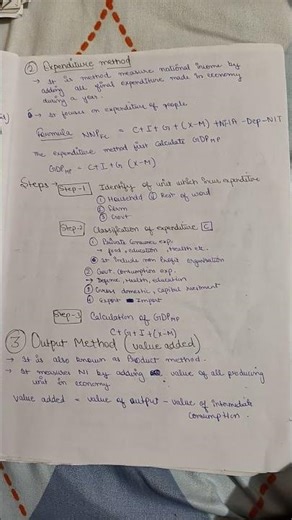 ② Expenditure method
→ It is method measure national income by
adding all final expenditure made in economy
during a year.
→ It focuses on expenditure of people
Formula NNPFC = C+I+G+(X-M)+NFIA-Dep-NIT
The expenditure method first calculate GDPMP
GDPMP = C+I+G (X-M)
Steps → Step-1 Identify of unit which incur expenditure
① Household ④ Rest of world
② Firm
③ Govt
Step-2 Classification of expenditure C
① Private Consumer exp.
→ food, education, Health etc.
④ It include non profit organisation
② Govt. Consumption exp.
→ Defence, Health, education
③ Gross domestic, Capital investment
④ Export - Import
Step-3 Calculation of GDPMP
C+G+I+(X-M)
③ Output Method (value added)
→ It is also known as Product method.
→ It measures NI by adding value of all producing
unit in economy.
value added = value of output - value of intermediate
Consumption.